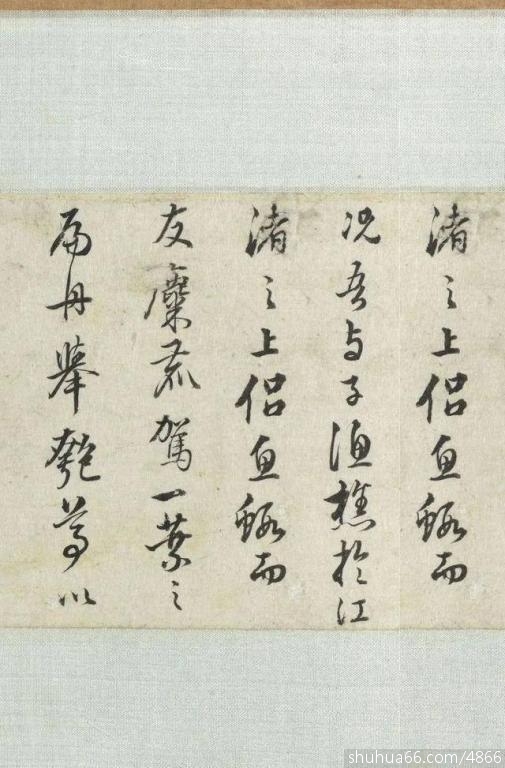 渚之上侣鱼虾而
况吾与子渔樵於江
渚之上侣鱼虾而
友麋鹿驾一葉之
扁舟舉匏尊以
shuhua66.com/4866